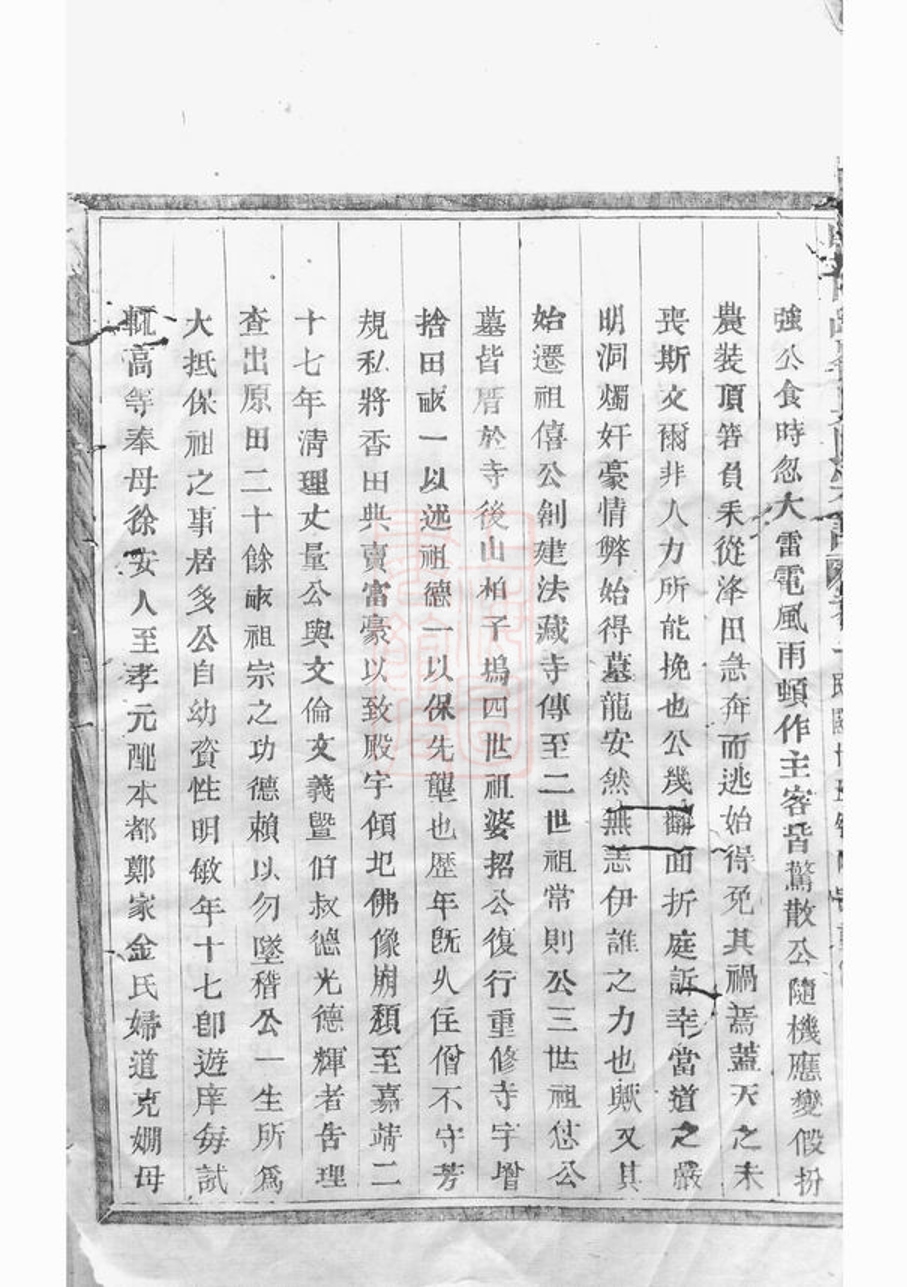 強公食時忽大雷電風雨頓作主客皆驚散公隨機應變假扮
農裝頂箬負耒從泽田急奔而逃始得免其禍焉蓋天之未
喪斯文爾非人力所能挽也公幾翻面折庭訴幸當道之嚴
明洞燭奸豪情弊始得墓龍安然無恙伊誰之力也歟又其
始遷祖僖公創建法藏寺傳至二世祖常則公三世祖公
墓皆厝於寺後山柏子塢四世祖婆招公復行重修寺宇增
捨田畝一以述祖德一以保先壟也歷年旣久住僧不守芳
規私將香田典賣富豪以致殿宇傾圮佛像崩頹至嘉靖二
十七年清理丈量公與文倫文義暨伯叔德光德輝者告理
查出原田二十餘畝祖宗之功德賴以勿墜稽公一生所爲
大抵保祖之事居多公自幼資性明敏年十七卽遊庠每試
輒高等奉母徐安人至孝元配本都鄭家金氏婦道克嫻母